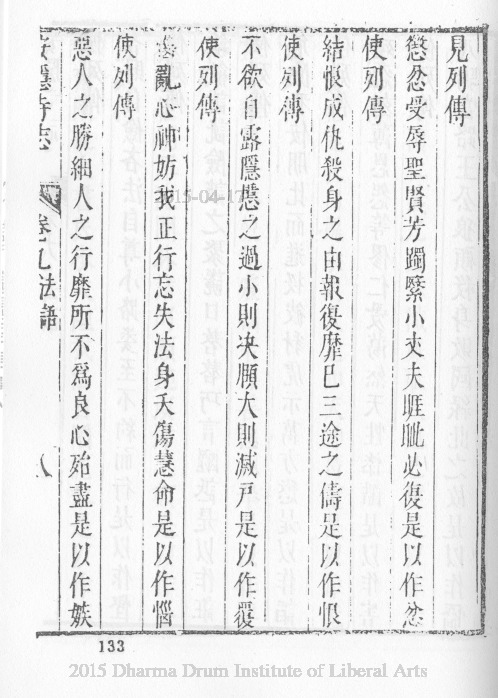 見列傳
懲忿受辱聖賢芳躅緊小丈夫睚眦必復是以作忿
使列傳
結恨成仇殺身之由報復靡已三途之儔是以作恨
使列傳
不欲自露隱慝之過小則決願大則滅尸是以作覆
使列傳
亂心神妨我正行忘失法身夭傷慧命是以作惱
使列傳
惡人之勝細人之行靡所不爲良心殆盡是以作嫉
隱寺志
卷七法語
八
133
2015-04-17
2015 Dharma Drum Institute of Liberal Arts